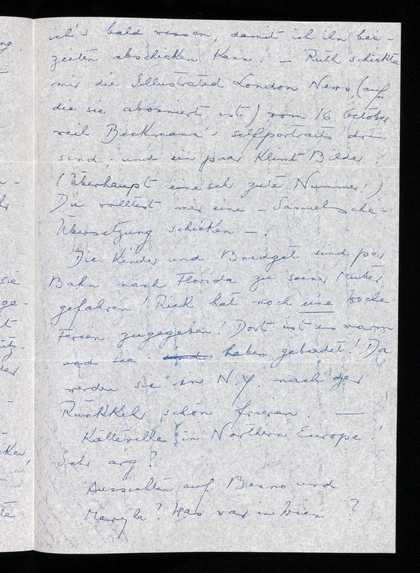 ich's bald wissen, damit ich ihn bei-
zeiten abschicken kann. – Ruth schickte
mir die Illustrated London News (auf
die sie aboniert ist) vom 16 October
weil Beckmann's selfportraits drin
sind. und ein paar Klimt Bilder!
(Überhaupt eine sehr gute Nummer!)
Du wolltest mir eine –
Übersetzung schicken –.
Die Kinder und Bridget sind per
Bahn nach Florida zu seiner Mutter
gefahren! Rick hat noch eine Woche
Ferien zugegeben! Dort ist es warm
und sie haben gebadet! Da
werden sie in N.Y. nach der
Rückkehr schön frieren. —
Kältewelle in Northern Europe!
Sehr arg?
Aussichten auf Benno und
Maryla? Was war in Wien?